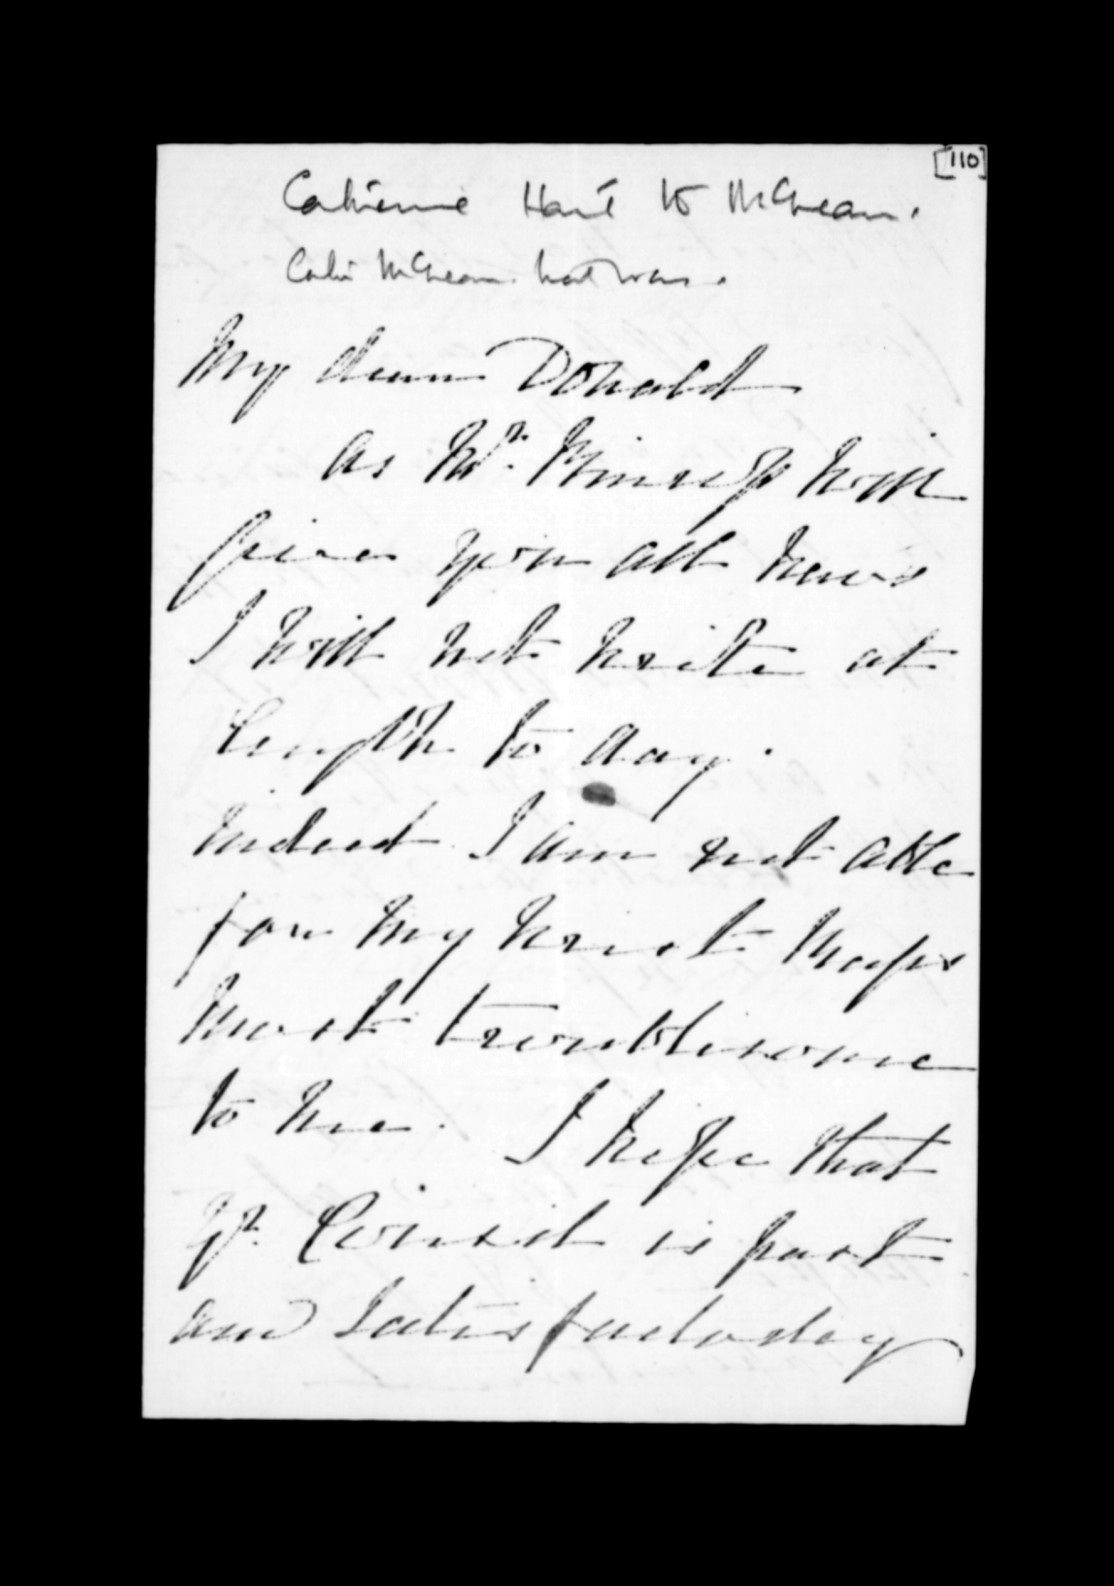 [110]
Catherine Hart to McLean.
Colin McLean.
My dear Donald
As Mr. Kinross will
give you all news
I will not write at
length to day.
indeed I am not able
for my wrist keeps
most troublesome
to me. I hope that
yr. Council is past
and satisfactorily